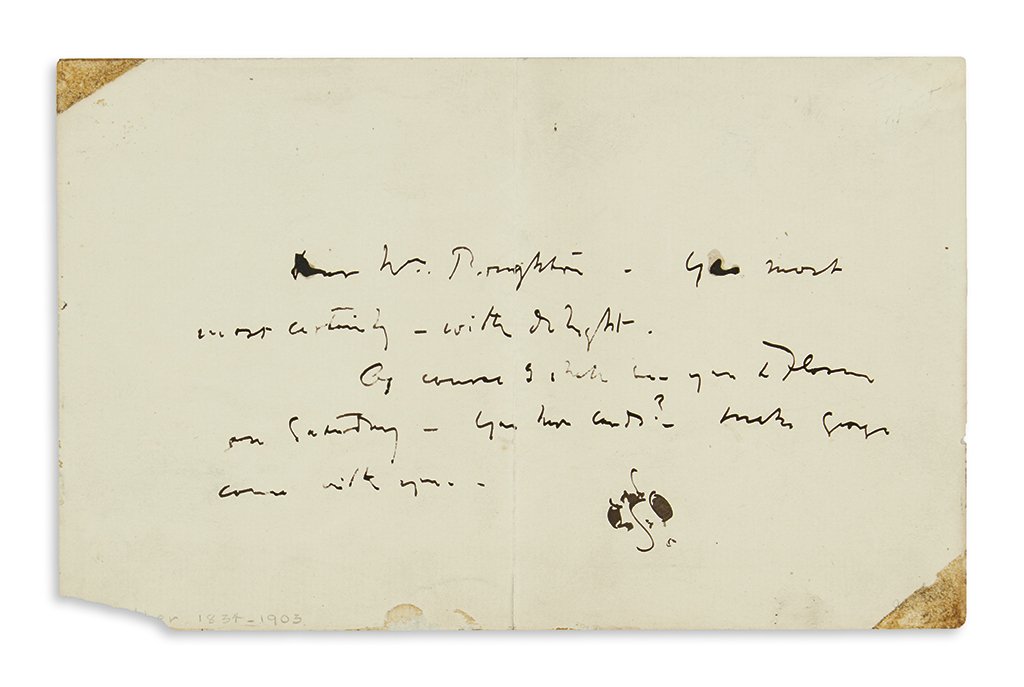 Dear Mrs. Boughton - Yes most
most certainly - with delight.
Of course I shall see you &
on Saturday - You have cards? - Make George
come with you. -
1834-1903